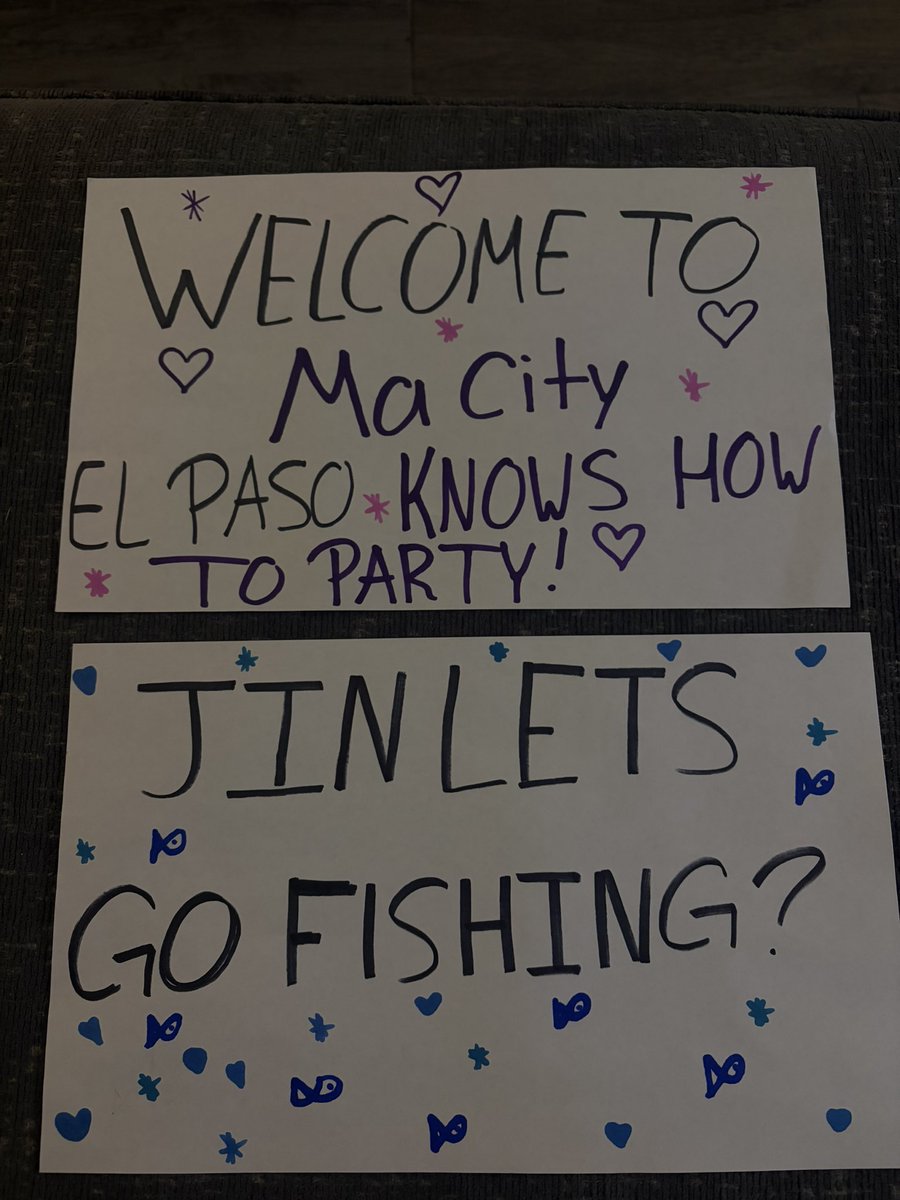 WELCOME TO
Ma City
EL PASO KNOWS HOW
TO PARTY!
JIN LETS
GO FISHING?